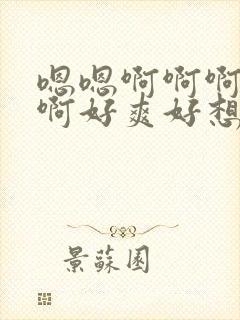 嗯嗯啊啊啊
啊好爽好想
景蘇園